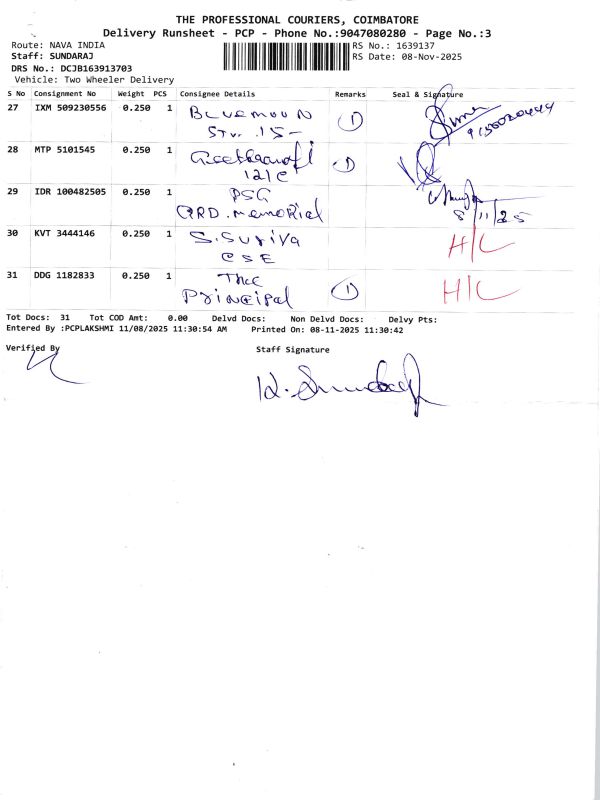 THE PROFESSIONAL COURIERS, COIMBATORE
Delivery Runsheet - PCP - Phone No.:9047080280 - Page No.:3
Route: NAVA INDIA
RS No.: 1639137
Staff: SUNDARAJ
RS Date: 08-Nov-2025
DRS No.: DCJB163913703
Vehicle: Two Wheeler Delivery
S No Consignment No Weight PCS Consignee Details Remarks Seal & Signature
27 IXM 509230556 0.250 1 Bluemoon 1
9150020444
28 MTP 5101545 0.250 1 1
121C
29 IDR 100482505 0.250 1 PSG
GRD. memorial 8/11/25
30 KVT 3444146 0.250 1 S. Suriya H/C
CSE
31 DDG 1182833 0.250 1 The H/C
Principal 1
Tot Docs: 31 Tot COD Amt: 0.00 Delvd Docs: Non Delvd Docs: Delvy Pts:
Entered By :PCPLAKSHMI 11/08/2025 11:30:54 AM Printed On: 08-11-2025 11:30:42
Verified By Staff Signature